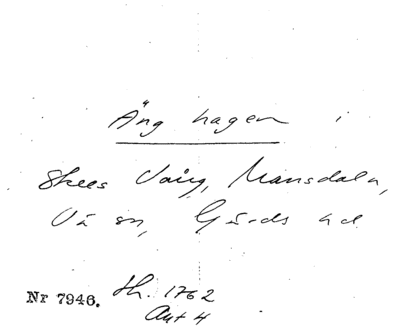 Äng hagen i
Skees Vång, Mansdala,
Vä sn, Gärds hd
Nr 7946. Sk. 1762
Akt 4